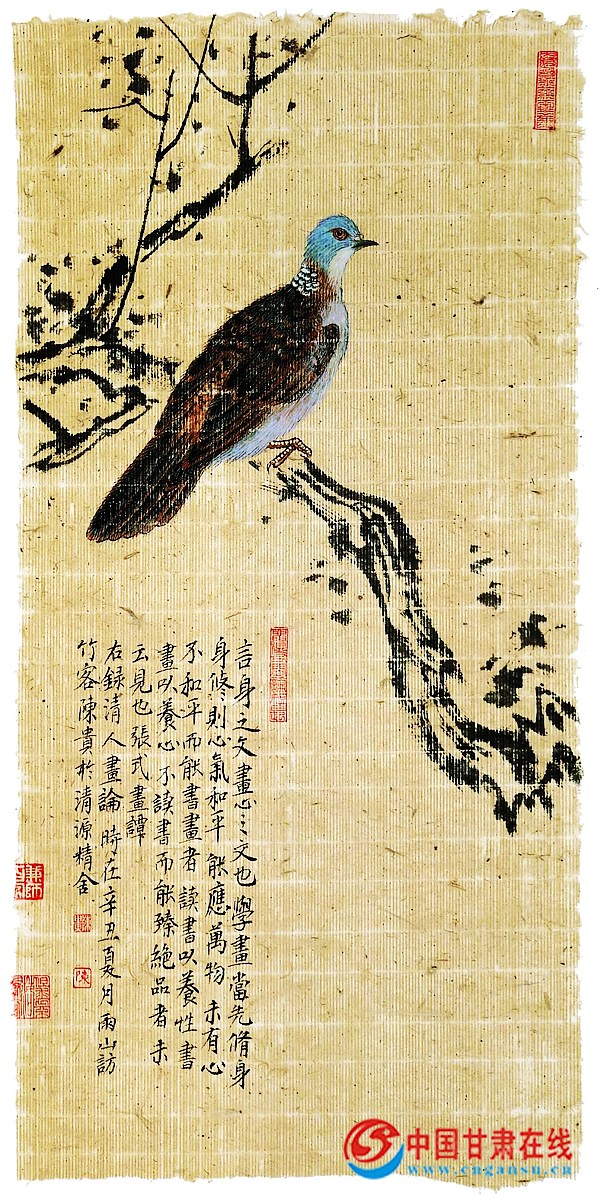 言身之文畫心之文也學畫當先脩身
身修則心氣和平能應萬物未有心
不和平而能書畫者讀書以養性書
畫以養心不讀書而能臻絕品者未
云見也張式畫譚
右録清人畫論時在辛丑夏月雨山訪
竹客陳貴於清源精舍
中国甘肃在线
www.cngansu.cn